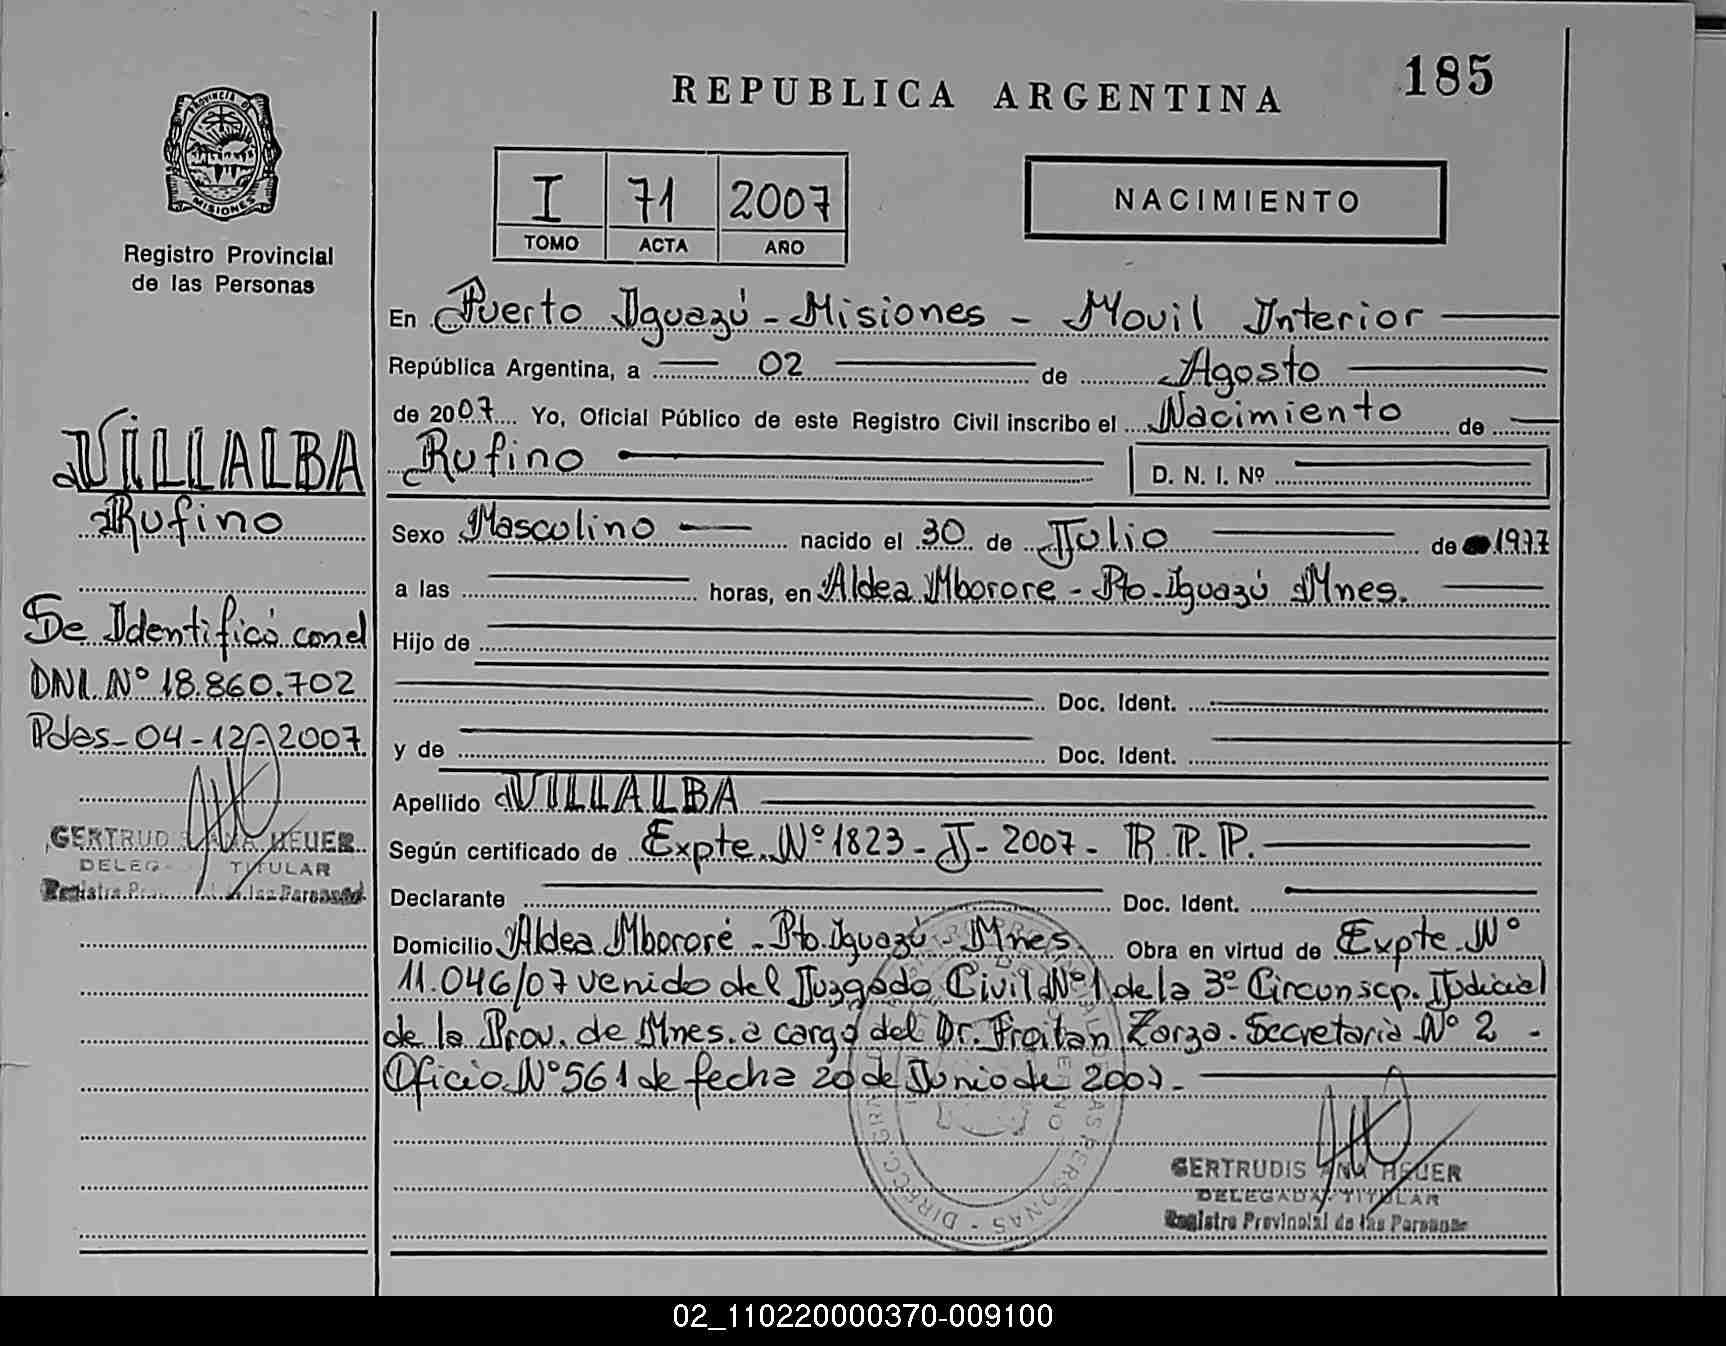 185
REPUBLICA ARGENTINA
PROVINCIA DE
MISIONES
Registro Provincial
de las Personas
I 71 2007
TOMO ACTA AÑO
NACIMIENTO
En Puerto Iguazú - Misiones - Movil Interior
República Argentina, a 02 de Agosto
de 2007 Yo, Oficial Público de este Registro Civil inscribo el Nacimiento de
Rufino D. N. I. Nº
Sexo Masculino nacido el 30 de Julio de 1977
a las horas, en Aldea Mborore - Pto. Iguazú Mnes.
Hijo de
Doc. Ident.
y de Doc. Ident.
Apellido VILLALBA
Según certificado de Expte. Nº 1823 - J - 2007 - R.P.P.
Declarante Doc. Ident.
Domicilio Aldea Mbororé - Pto. Iguazú - Mnes. Obra en virtud de Expte. Nº
11.046/07 venido del Juzgado Civil Nº 1 de la 3º Circunscp. Judicial
de la Prov. de Mnes. a cargo del Dr. Froitan Zorza. Secretaria Nº 2 -
Oficio Nº 561 de fecha 20 de Junio de 2007.-
GERTRUDIS ANA HEUER
DELEGADA TITULAR
Registro Provincial de las Personas
VILLALBA
Rufino
Se Identificó con el
DNI. Nº 18.860.702
Pdas - 04 - 12 - 2007
GERTRUDIS ANA HEUER
TITULAR
de las Personas
02_110220000370-009100